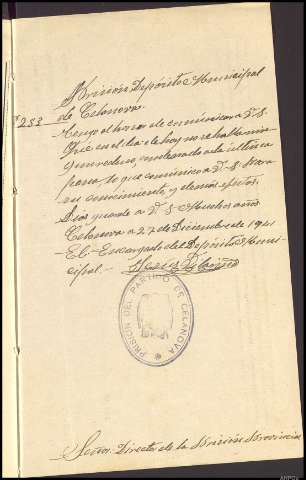 Prisión Depósito Municipal
de Celanova.
nº 283
Tengo el honor de comunicar a V.S.
que en el día de hoy no se halla
recluso, condenado a la última
pena, lo que comunico a V.S. para
su conocimiento y demás efectos.
Dios guarde a V.S. muchos años
Celanova a 27 de Diciembre de 1941
El Encargado del Depósito Muni-
cipal.-
PRISIÓN DEL PARTIDO DE CELANOVA
Señor Director de la Prisión Provincial